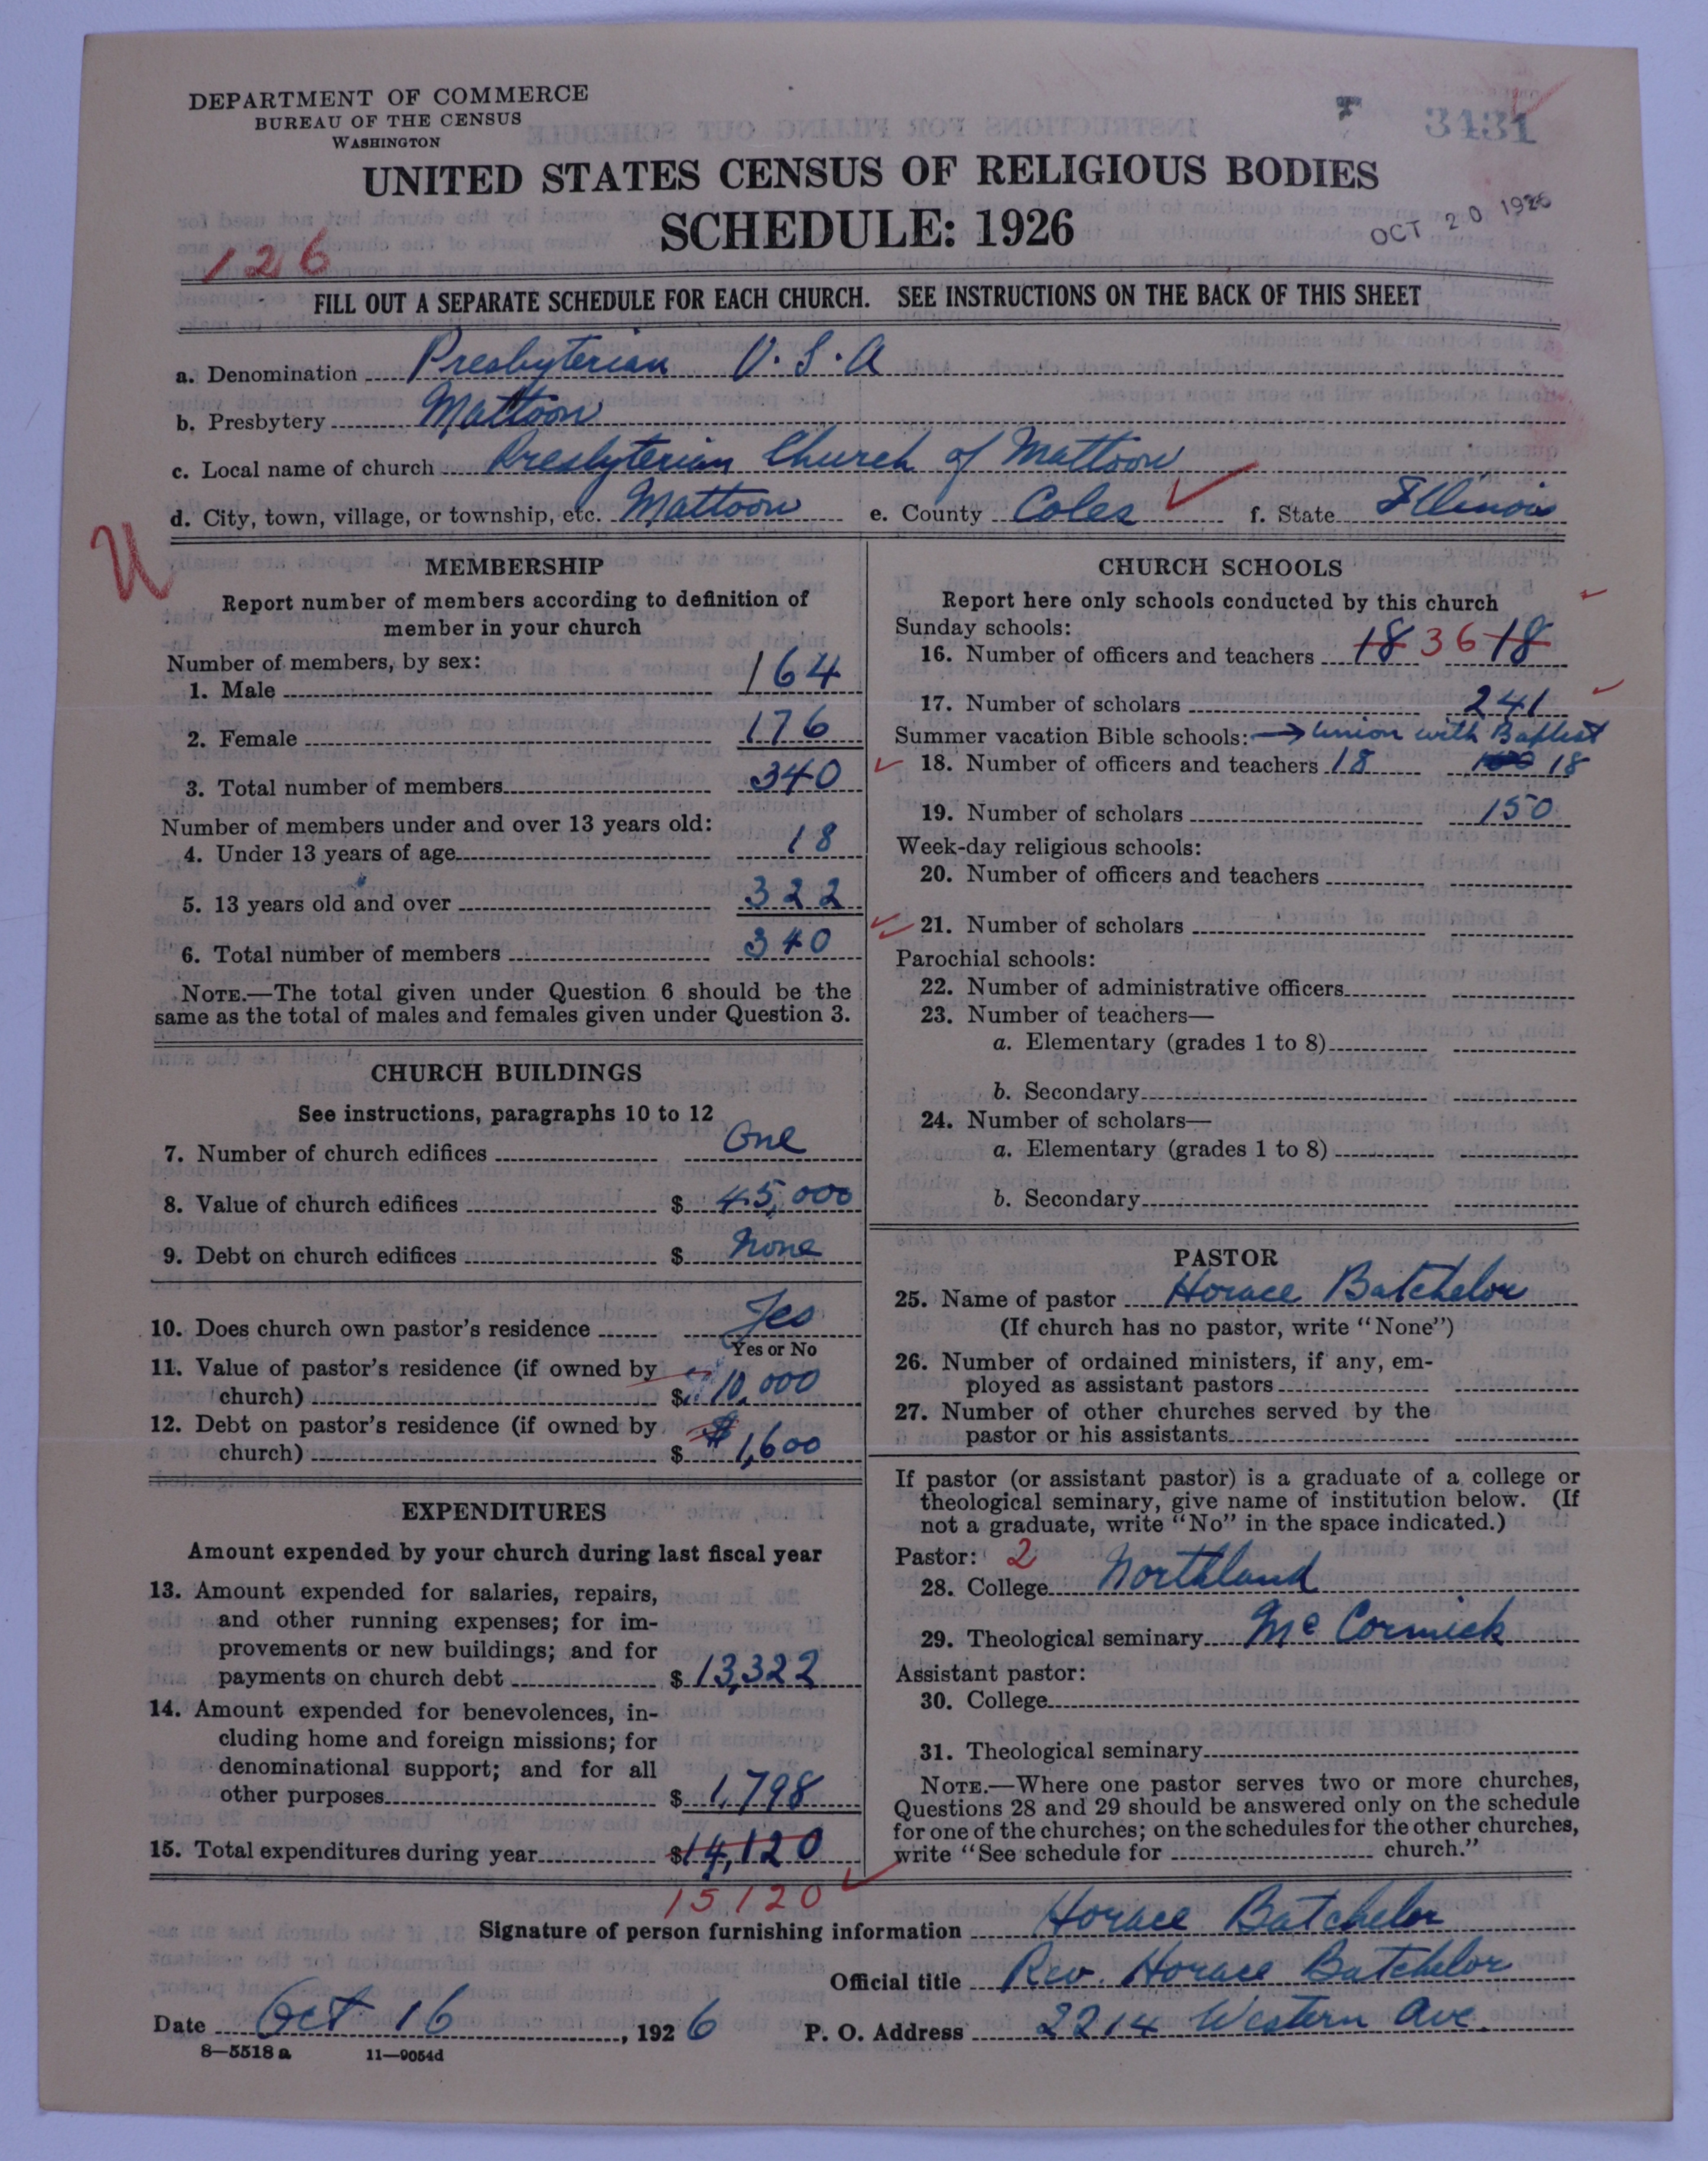 DEPARTMENT OF COMMERCE
BUREAU OF THE CENSUS
WASHINGTON
3431
UNITED STATES CENSUS OF RELIGIOUS BODIES
SCHEDULE: 1926
OCT 20 1926
126
FILL OUT A SEPARATE SCHEDULE FOR EACH CHURCH. SEE INSTRUCTIONS ON THE BACK OF THIS SHEET
a. Denomination Presbyterian U.S.A
b. Presbytery Mattoon
c. Local name of church Presbyterian Church of Mattoon
d. City, town, village, or township, etc. Mattoon e. County Coles f. State Illinois
U
MEMBERSHIP
Report number of members according to definition of
member in your church
Number of members, by sex:
1. Male 164
2. Female 176
3. Total number of members 340
Number of members under and over 13 years old:
4. Under 13 years of age 18
5. 13 years old and over 322
6. Total number of members 340
NOTE.—The total given under Question 6 should be the
same as the total of males and females given under Question 3.
CHURCH BUILDINGS
See instructions, paragraphs 10 to 12
7. Number of church edifices One
8. Value of church edifices $ 45,000
9. Debt on church edifices $ None
10. Does church own pastor's residence Yes
Yes or No
11. Value of pastor's residence (if owned by
church) $ 10,000
12. Debt on pastor's residence (if owned by
church) $ $1,600
EXPENDITURES
Amount expended by your church during last fiscal year
13. Amount expended for salaries, repairs,
and other running expenses; for im-
provements or new buildings; and for
payments on church debt $ 13,322
14. Amount expended for benevolences, in-
cluding home and foreign missions; for
denominational support; and for all
other purposes $ 1,798
15. Total expenditures during year $14,120
15120
CHURCH SCHOOLS
Report here only schools conducted by this church
Sunday schools:
16. Number of officers and teachers 18 36 18
17. Number of scholars 241
Summer vacation Bible schools: → Union with Baptist
18. Number of officers and teachers 18 18
19. Number of scholars 150
Week-day religious schools:
20. Number of officers and teachers
21. Number of scholars
Parochial schools:
22. Number of administrative officers
23. Number of teachers—
a. Elementary (grades 1 to 8)
b. Secondary
24. Number of scholars—
a. Elementary (grades 1 to 8)
b. Secondary
PASTOR
25. Name of pastor Horace Batchelor
(If church has no pastor, write "None")
26. Number of ordained ministers, if any, em-
ployed as assistant pastors
27. Number of other churches served by the
pastor or his assistants
If pastor (or assistant pastor) is a graduate of a college or
theological seminary, give name of institution below. (If
not a graduate, write "No" in the space indicated.)
Pastor: 2
28. College Northland
29. Theological seminary McCormick
Assistant pastor:
30. College
31. Theological seminary
NOTE.—Where one pastor serves two or more churches,
Questions 28 and 29 should be answered only on the schedule
for one of the churches; on the schedules for the other churches,
write "See schedule for church."
Signature of person furnishing information Horace Batchelor
Official title Rev. Horace Batchelor
Date Oct 16, 1926 P. O. Address 2214 Western Ave.
8—5518a 11—9054d